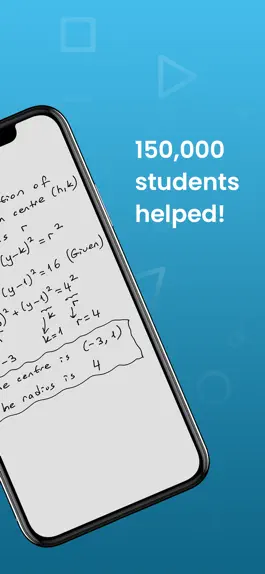 150,000
students
helped!
of
centre (h,k)
is r
(y-k)² = r²
(y-1)² = 16 (Given)
)² + (y-1)² = 4²
k r
k=1 r=4
-3
centre is (-3, 1)
he radius is 4